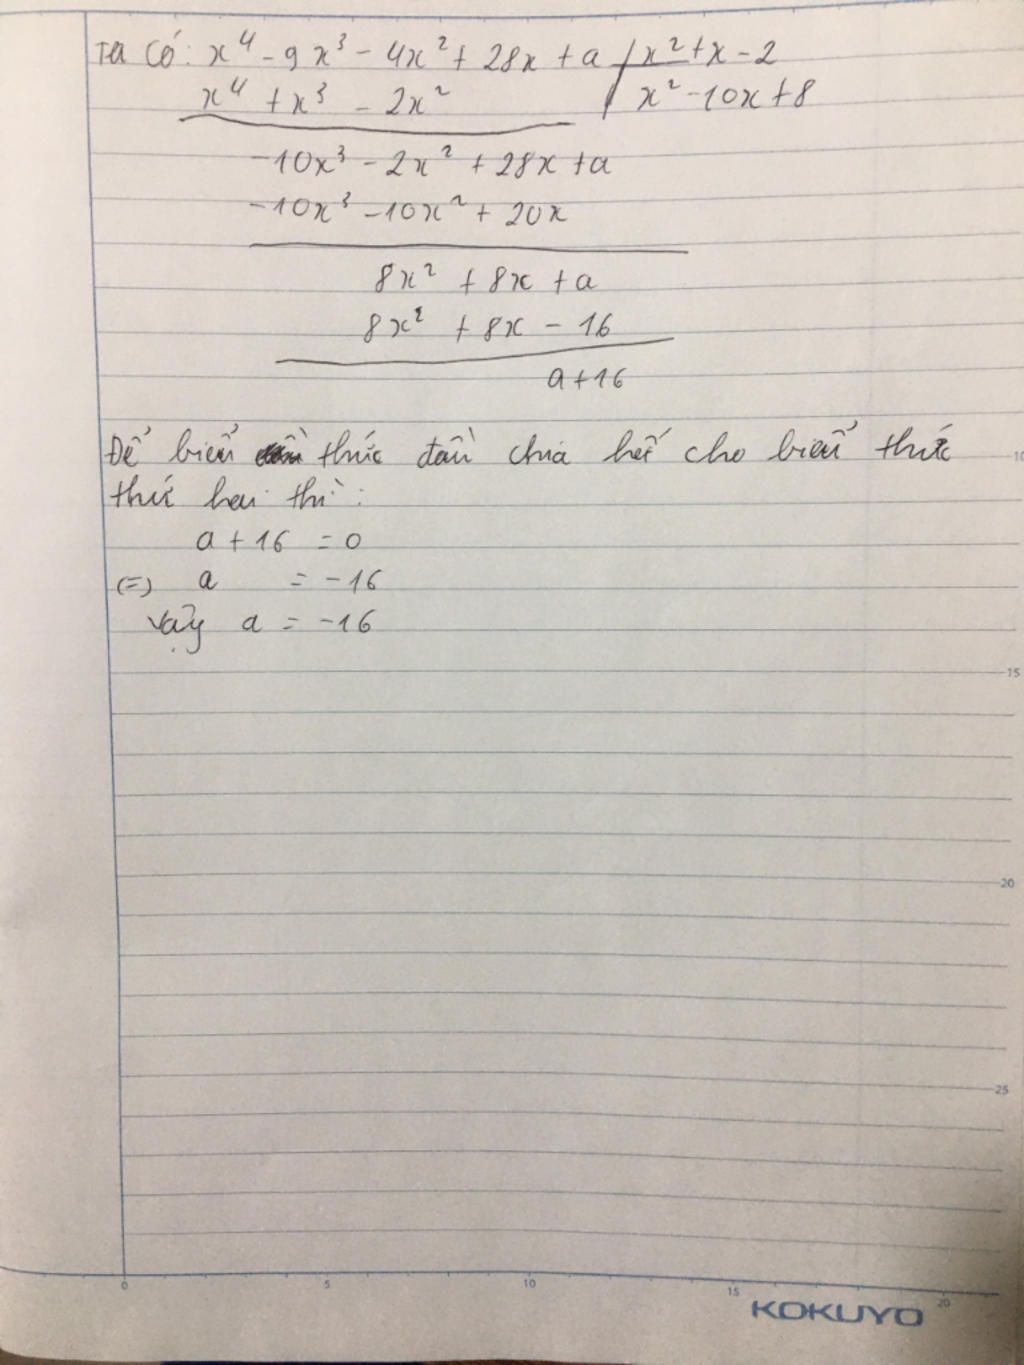 Ta có: x⁴ - 9x³ - 4x² + 28x + a | x² + x - 2
x⁴ + x³ - 2x² | x² - 10x + 8
-10x³ - 2x² + 28x + a
-10x³ - 10x² + 20x
8x² + 8x + a
8x² + 8x - 16
a + 16
Để biểu thức đầu chia hết cho biểu thức
thứ hai thì:
a + 16 = 0
(=) a = -16
Vậy a = -16
10
15
20
25
0 5 10 15 20
KOKUYO